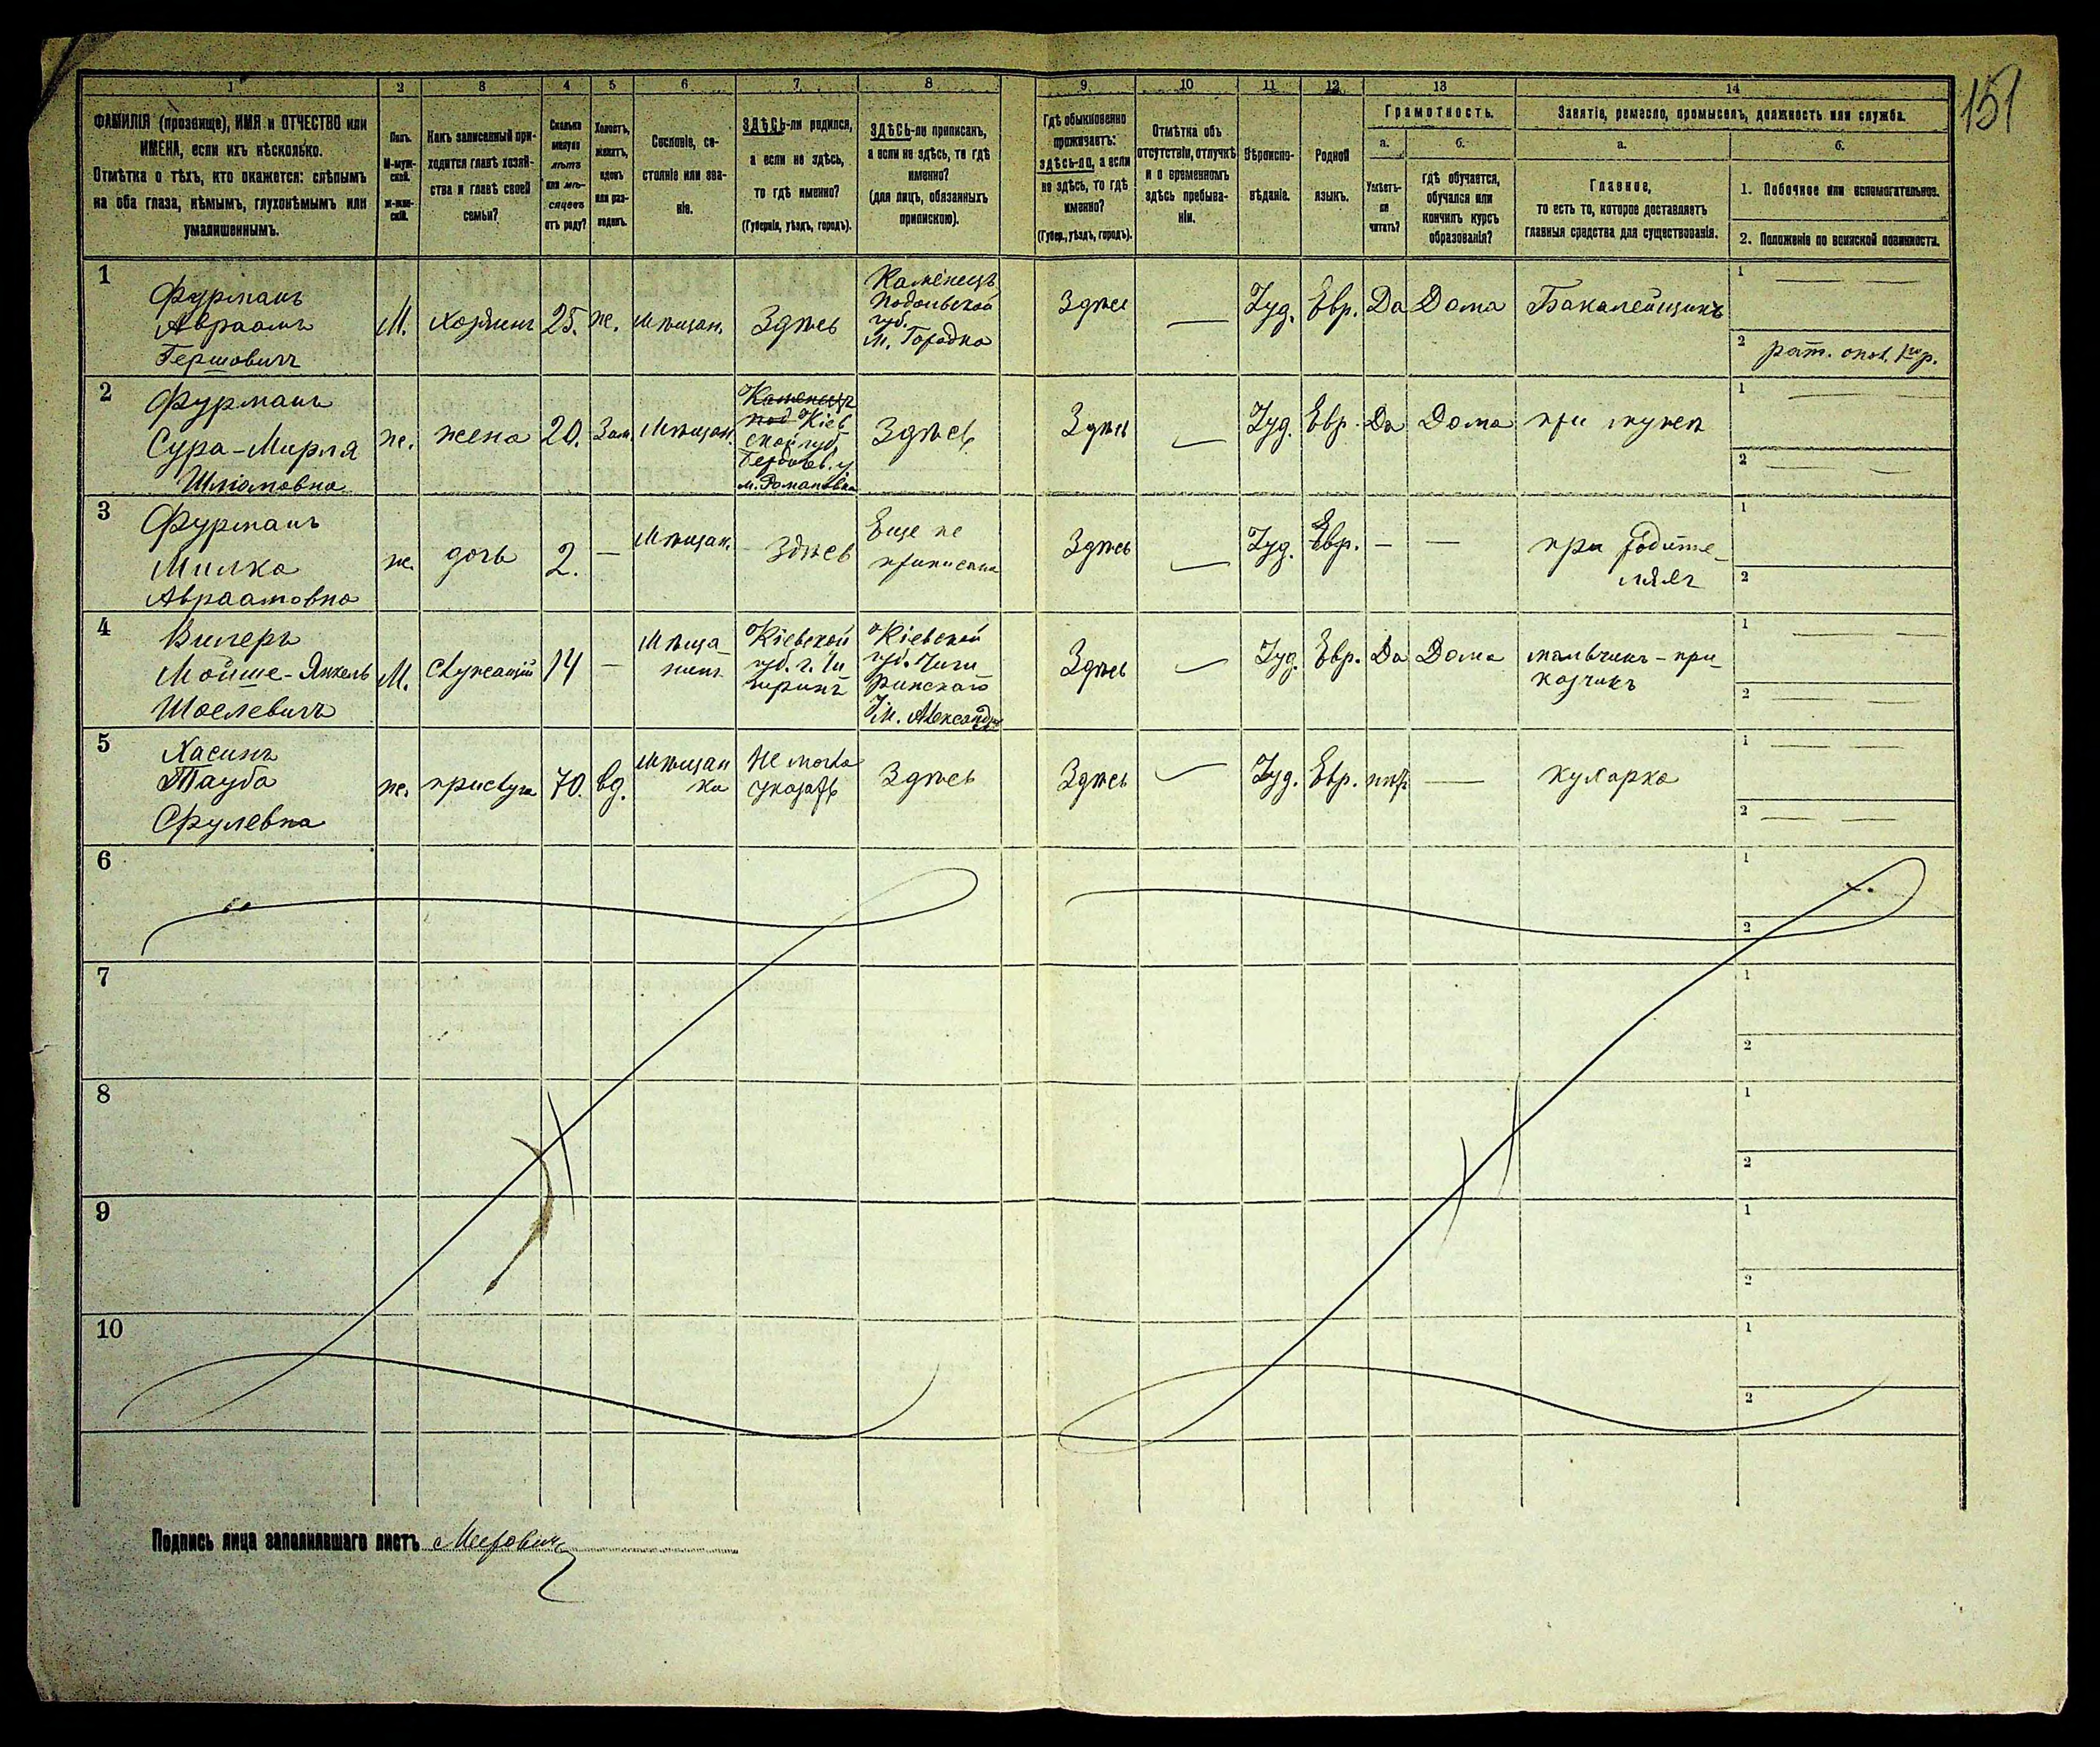 151
1
2
3
4
5
6
7
8
9
10
11
12
13
14
ФАМИЛІЯ (прозвище), ИМЯ и ОТЧЕСТВО или
ИМЕНА, если ихъ нѣсколько.
Отмѣтка о тѣхъ, кто окажется: слѣпымъ
на оба глаза, нѣмымъ, глухонѣмымъ или
умалишеннымъ.
Полъ.
М-муж-
ской.
ж-жен-
скій.
Какъ записанный при-
ходится главѣ хозяй-
ства и главѣ своей
семьи?
Сколько
минуло
лѣтъ
или мѣ-
сяцевъ
отъ роду?
Холостъ,
женатъ,
вдовъ
или раз-
веденъ.
Сословіе, со-
стояніе или зва-
ніе.
ЗДѢСЬ-ли родился,
а если не здѣсь,
то гдѣ именно?
(Губернія, уѣздъ, городъ).
ЗДѢСЬ-ли приписанъ,
а если не здѣсь, то гдѣ
именно?
(для лицъ, обязанныхъ
припискою).
Гдѣ обыкновенно
проживаетъ:
здѣсь-ли, а если
не здѣсь, то гдѣ
именно?
(Губер., уѣздъ, городъ).
Отмѣтка объ
отсутствіи, отлучкѣ
и о временномъ
здѣсь пребыва-
ніи.
Вѣроиспо-
вѣданіе.
Родной
языкъ.
Грамотность.
а.
Умѣетъ-
ли
читать?
б.
гдѣ обучается,
обучался или
кончилъ курсъ
образованія?
Занятіе, ремесло, промыселъ, должность или служба.
а.
Главное,
то есть то, которое доставляетъ
главныя средства для существованія.
б.
1. Побочное или вспомогательное.
2. Положеніе по воинской повинности.
1
Фурманъ
Авраамъ
Гершовичъ
М.
хозяинъ
25.
же.
Мѣщан.
Здѣсь
Каменецъ
Подольской
губ.
М. Городка
Здѣсь
Іуд.
Евр.
Да
Дома
Бакалейщикъ
1
2
рат. опол. 1го р.
2
Фурманъ
Сура-Мирля
Шліомовна
же.
жена
20.
Зам.
Мѣщан.
Каменецъ
под Кіев
ской губ.
Бердичев. у.
м. Романовка
Здѣсь
Здѣсь
Іуд.
Евр.
Да
Дома
при мужѣ
1
2
3
Фурманъ
Милка
Авраамовна
же.
дочь
2.
Мѣщан.
Здѣсь
Еще не
приписана
Здѣсь
Іуд.
Евр.
при родите-
ляхъ
1
2
4
Вилеръ
Мойше-Янкель
Шоелевичъ
М.
Служащій
14
Мѣща-
нинъ
Кіевской
губ. г. Чи
гиринъ
Кіевской
губ. Чиги
ринскаго
у. М. Александр
Здѣсь
Іуд.
Евр.
Да
Дома
мальчикъ-при
казчикъ
1
2
5
Хасинъ
Тауба
Срулевна
же.
прислуга
70.
вд.
Мѣщан
ка
Не могла
указать
Здѣсь
Здѣсь
Іуд.
Евр.
нѣтъ
кухарка
1
2
6
1
2
7
1
2
8
1
2
9
1
2
10
1
2
Подпись лица заполнявшаго листъ Меерович